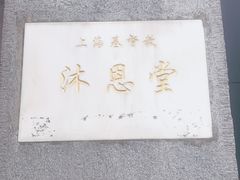 上海基督教
沐恩堂